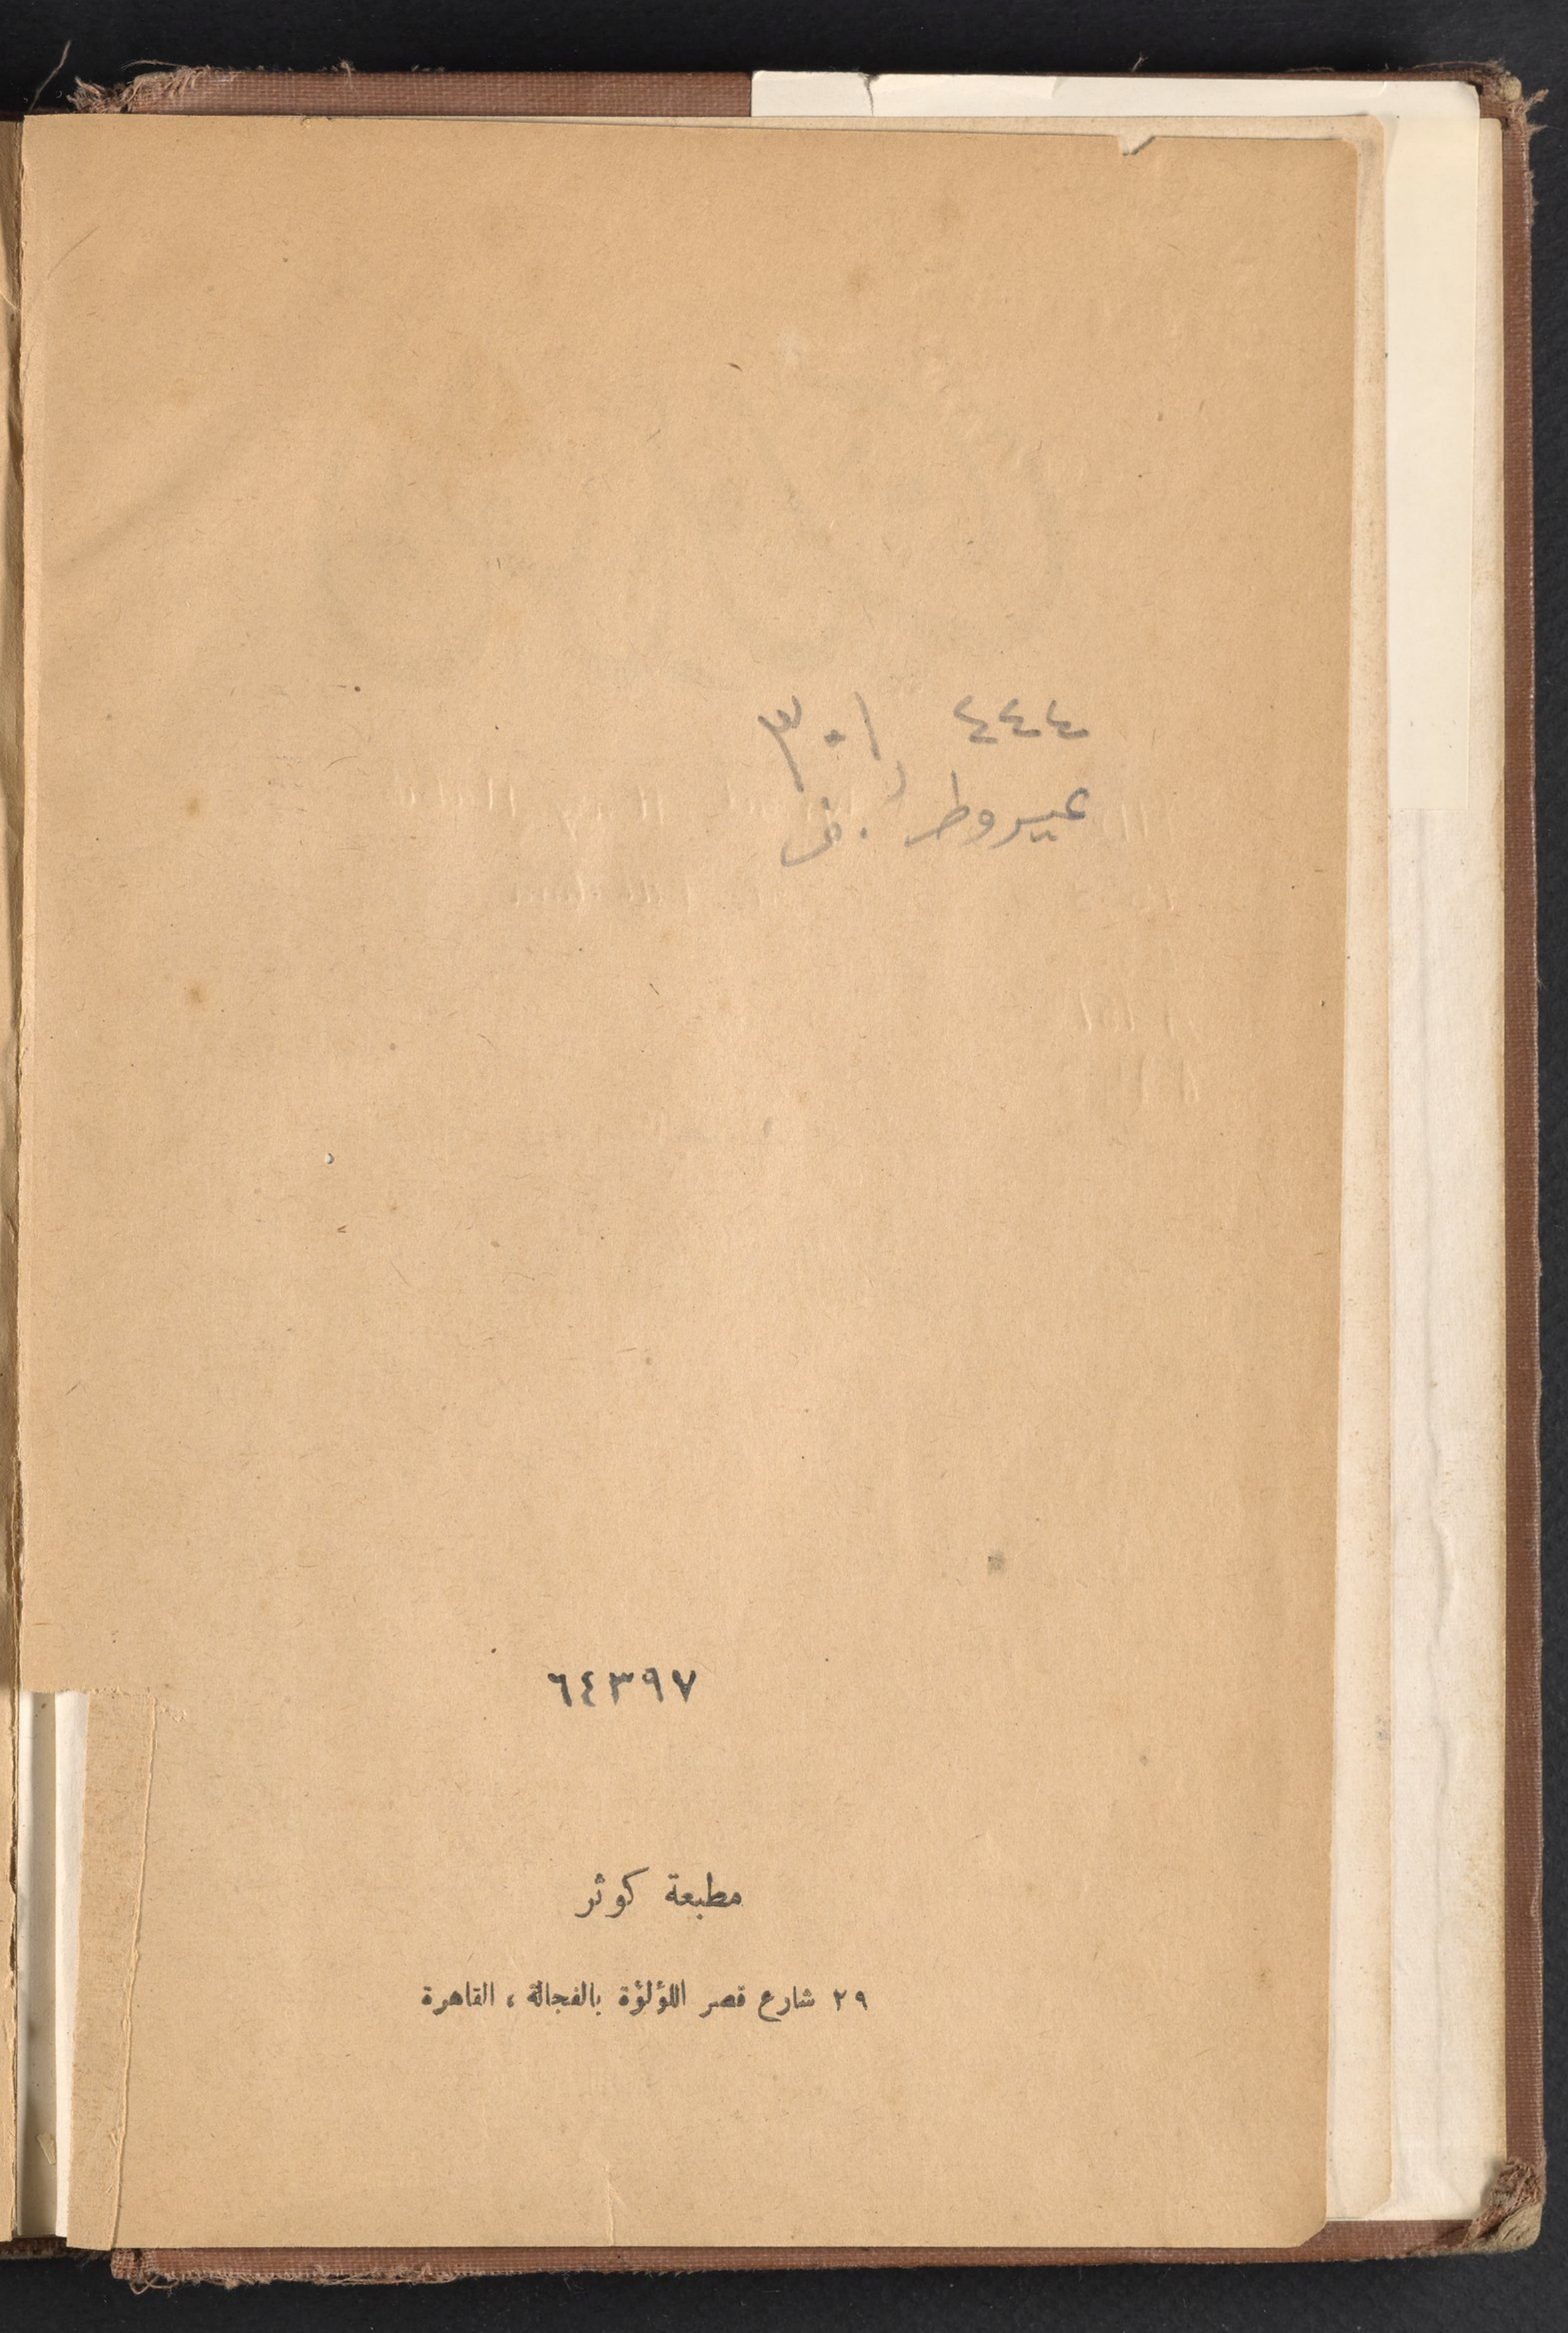 ٣٠١ ٤٤٤
عيروط
٦٤٣٩٧
مطبعة كوثر
٢٩ شارع قصر اللؤلؤة بالفجالة ، القاهرة